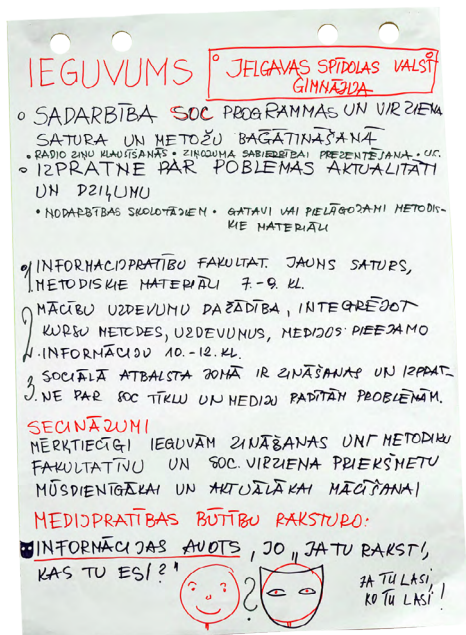 IEGUVUMS
JELGAVAS SPĪDOLAS VALST
ĢIMNĀZIJA
SADARBĪBA SOC PROGRAMMAS UN VIRZIENA
SATURA UN METOŽU BAGĀTINĀŠANĀ
• RADIO ZIŅU KLAUSĪŠANĀS • ZIŅOJUMA SABIEDRĪBAI PREZENTĒJANA • U.C.
IZPRATNE PAR POBLĒMAS AKTUALITĀTI
UN DZIĻUMU
• NODARBĪBAS SKOLOTĀJIEM • GATAVI VAI PIELĀGOJAMI METODIS-
KIE MATERIĀLI
1. INFORMĀCIJPRATĪBU FAKULTAT. JAUNS SATURS,
METODISKIE MATERIĀLI 7.-9. KL.
2. MĀCĪBU UZDEVUMU DAŽĀDĪBA, INTEGRĒJOT
KURSU METODES, UZDEVUMUS, MEDIJOS PIEEJAMO
INFORMĀCIJU 10.-12. KL.
3. SOCIĀLĀ ATBALSTA JOMĀ IR ZINĀŠANAS UN IZPRAT-
NE PAR SOC TĪKLU UN MEDIJU RADĪTĀM PROBLĒMĀM.
SECINĀJUMI
MĒRĶTIECĪGI IEGUVĀM ZINĀŠANAS UN METODIKU
FAKULTATĪVU UN SOC. VIRZIENA PRIEKŠMETU
MŪSDIENĪGĀKAI UN AKTUĀLĀKAI MĀCĪŠANAI
MEDIJPRATĪBAS BŪTĪBU RAKSTURO:
INFORMĀCIJAS AVOTS, JO "JA TU RAKSTI,
KAS TU ESI?"
JA TU LASI,
KO TU LASI!
?